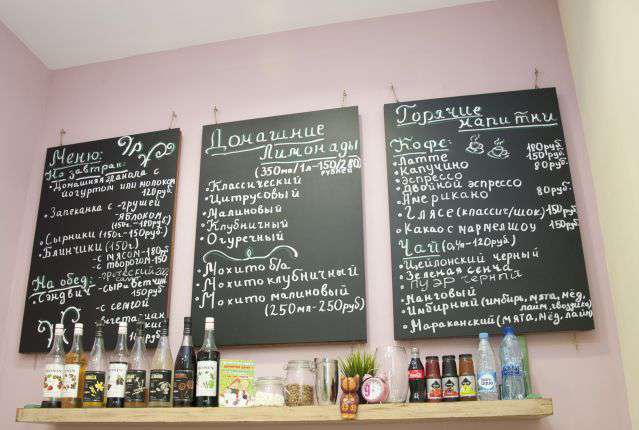 Меню:
На завтрак:
Домашняя гранола с
йогуртом или молоком
120руб.
Запеканка с -грушей
-яблоком
(150г.-180руб.)
Сырники (150г.-150руб.)
Блинчики (150г.)
-с мясом-180руб
-с творогом-150
На обед:
Сэндвич
-сыр+ветчина
150руб.
-с семгой
Домашние
Лимонады
(350мл/1л-150/280
рублей)
Классический
Цитрусовый
Малиновый
Клубничный
Огуречный
Мохито б/а
Мохито клубничный
Мохито малиновый
(250мл-250руб)
Горячие
напитки
Кофе:
Латте 180руб.
Капучино 150руб.
Эспрессо 80руб.
Двойной эспрессо
Американо 80руб.
Глясе (классик/шок) 150руб.
Какао с маршмеллоу 150руб.
Чай (0,4л-120руб.)
Цейлонский черный
Зеленая сенча
Пуэр черный
Манговый
Имбирный (имбирь, мята, мёд,
лайм, гвоздика)
Мараканский (мята, мёд, лайм)
MONIN
MONIN